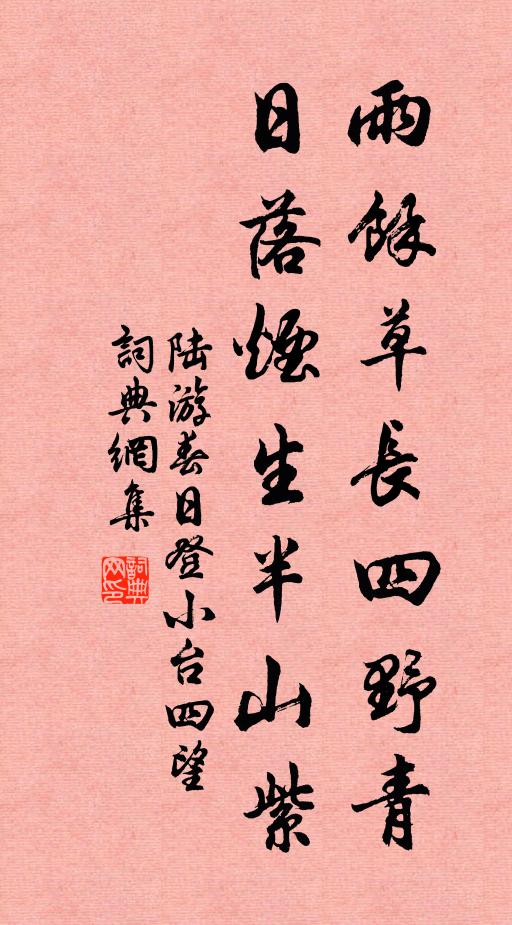 雨餘草長四野青
日落煙生半山紫
陆游春日登小台四望
詞典網集
詞典网印